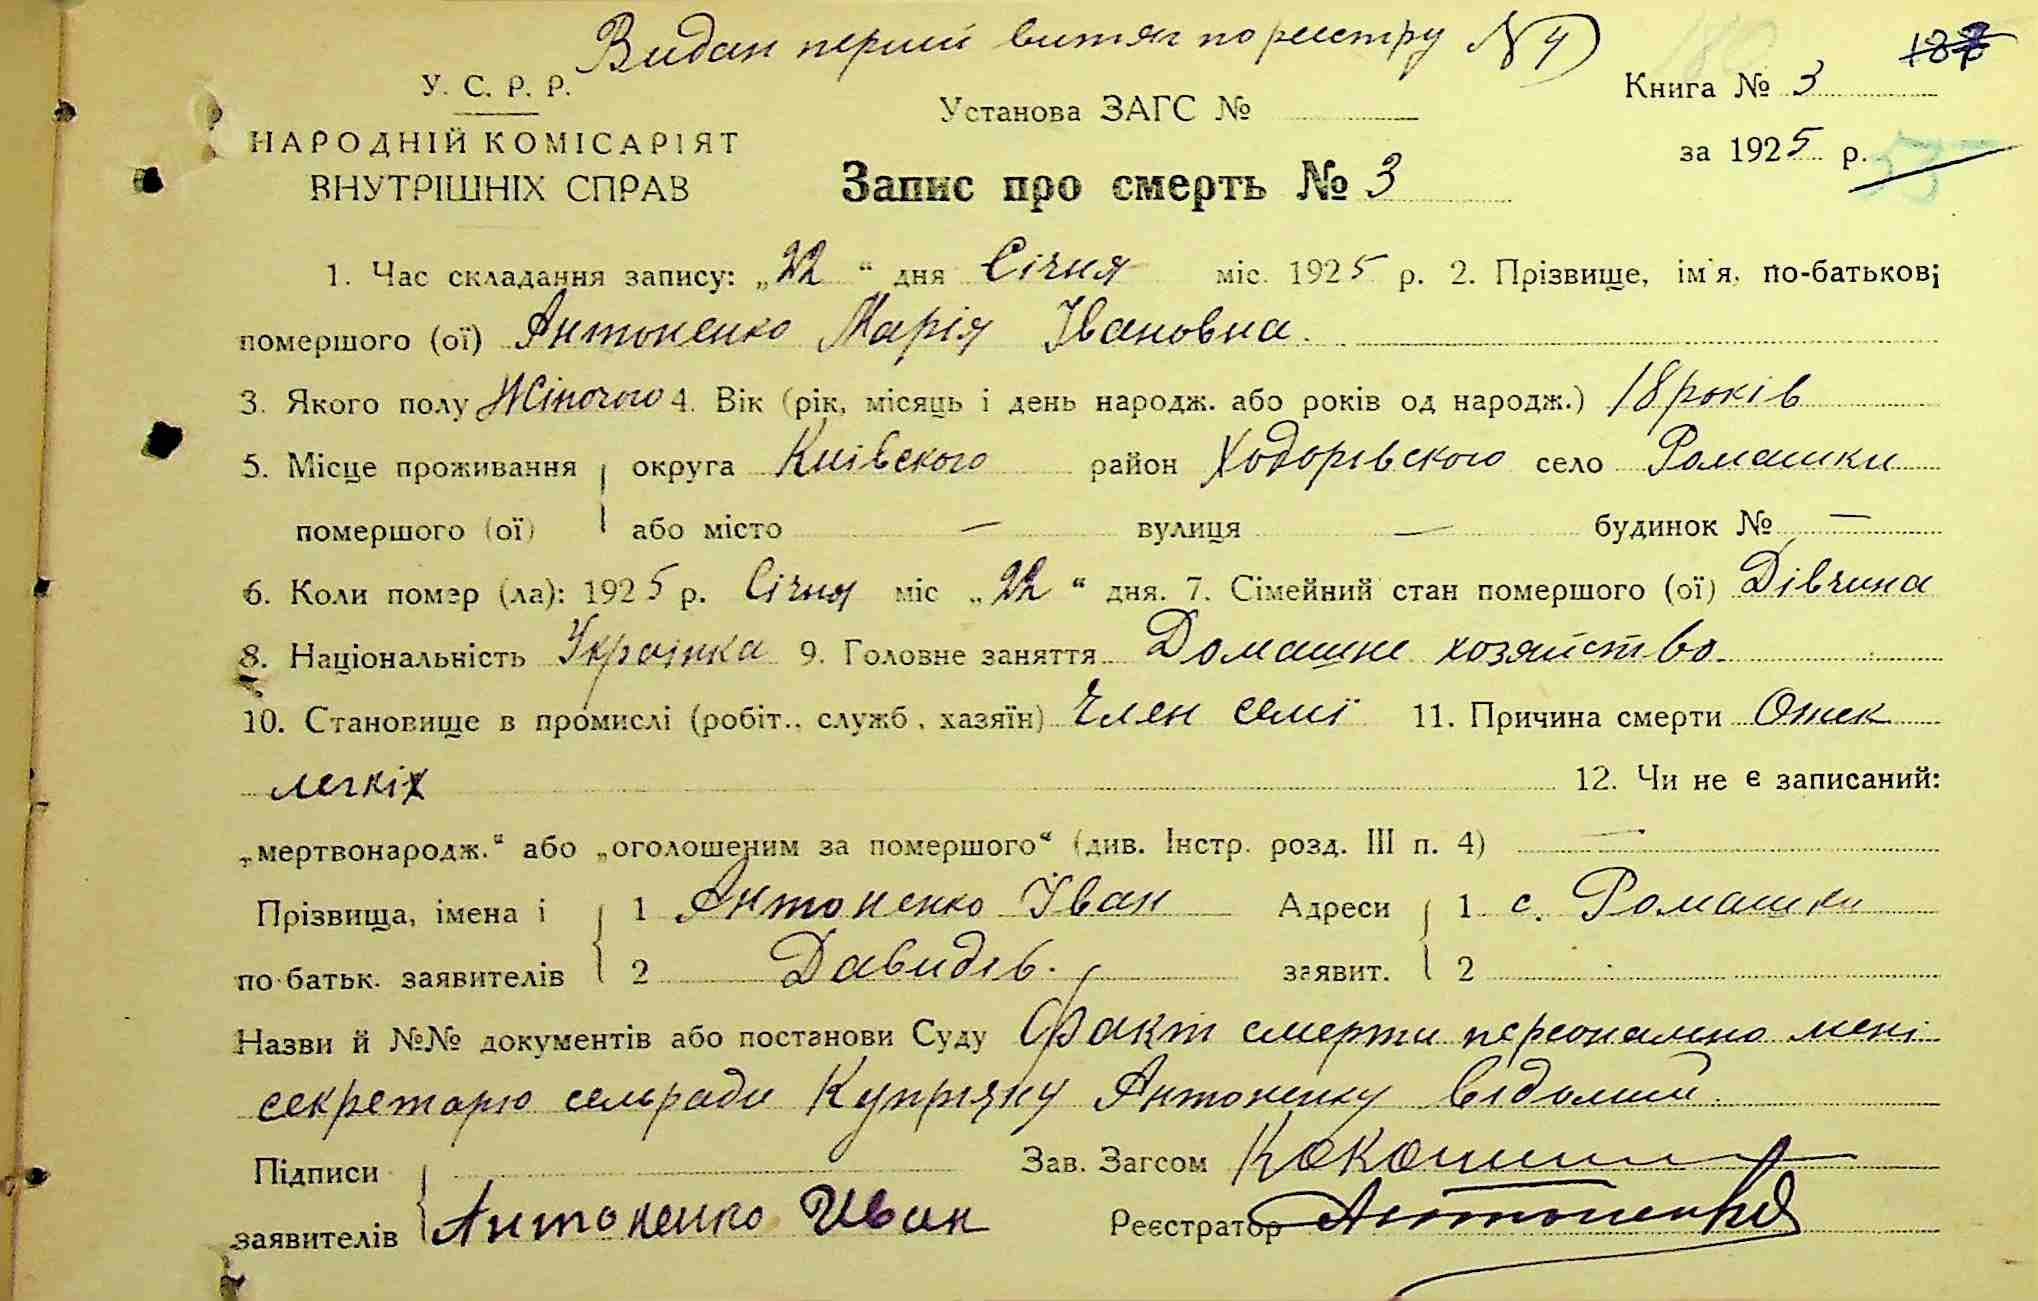 Видан перший витяг по реєстру N 4)
187
У. С. Р. Р.
Книга № 3
Установа ЗАГС №
НАРОДНІЙ КОМІСАРІЯТ
за 1925 р.
ВНУТРІШНІХ СПРАВ
Запис про смерть № 3
1. Час складання запису: „22“ дня Січня міс. 1925 р. 2. Прізвище, ім'я, по-батькові
помершого (ої) Антоненко Марія Івановна.
3. Якого полу Жіночого 4. Вік (рік, місяць і день народж. або років од народж.) 18 років
5. Місце проживання округа Київского район Ходорівского село Ромашки
помершого (ої) або місто — вулиця — будинок № —
6. Коли помер (ла): 1925 р. Січня міс „22“ дня. 7. Сімейний стан помершого (ої) Дівчина
8. Національність Українка 9. Головне заняття Домашне хозяйство.
10. Становище в промислі (робіт., служб, хазяїн) Член семі 11. Причина смерти Отек
легкіх 12. Чи не є записаний:
„мертвонародж.“ або „оголошеним за помершого“ (див. Інстр. розд. III п. 4) —
Прізвища, імена і 1 Антоненко Іван Адреси 1 с. Ромашки
по-батьк. заявителів 2 Давидів. заявит. 2
Назви й №№ документів або постанови Суду Факт смерти персонально мені
секретарю сельради Купріяну Антоненку відомий.
Підписи Зав. Загсом
заявителів Антоненко Иван Реєстратор Антоненко